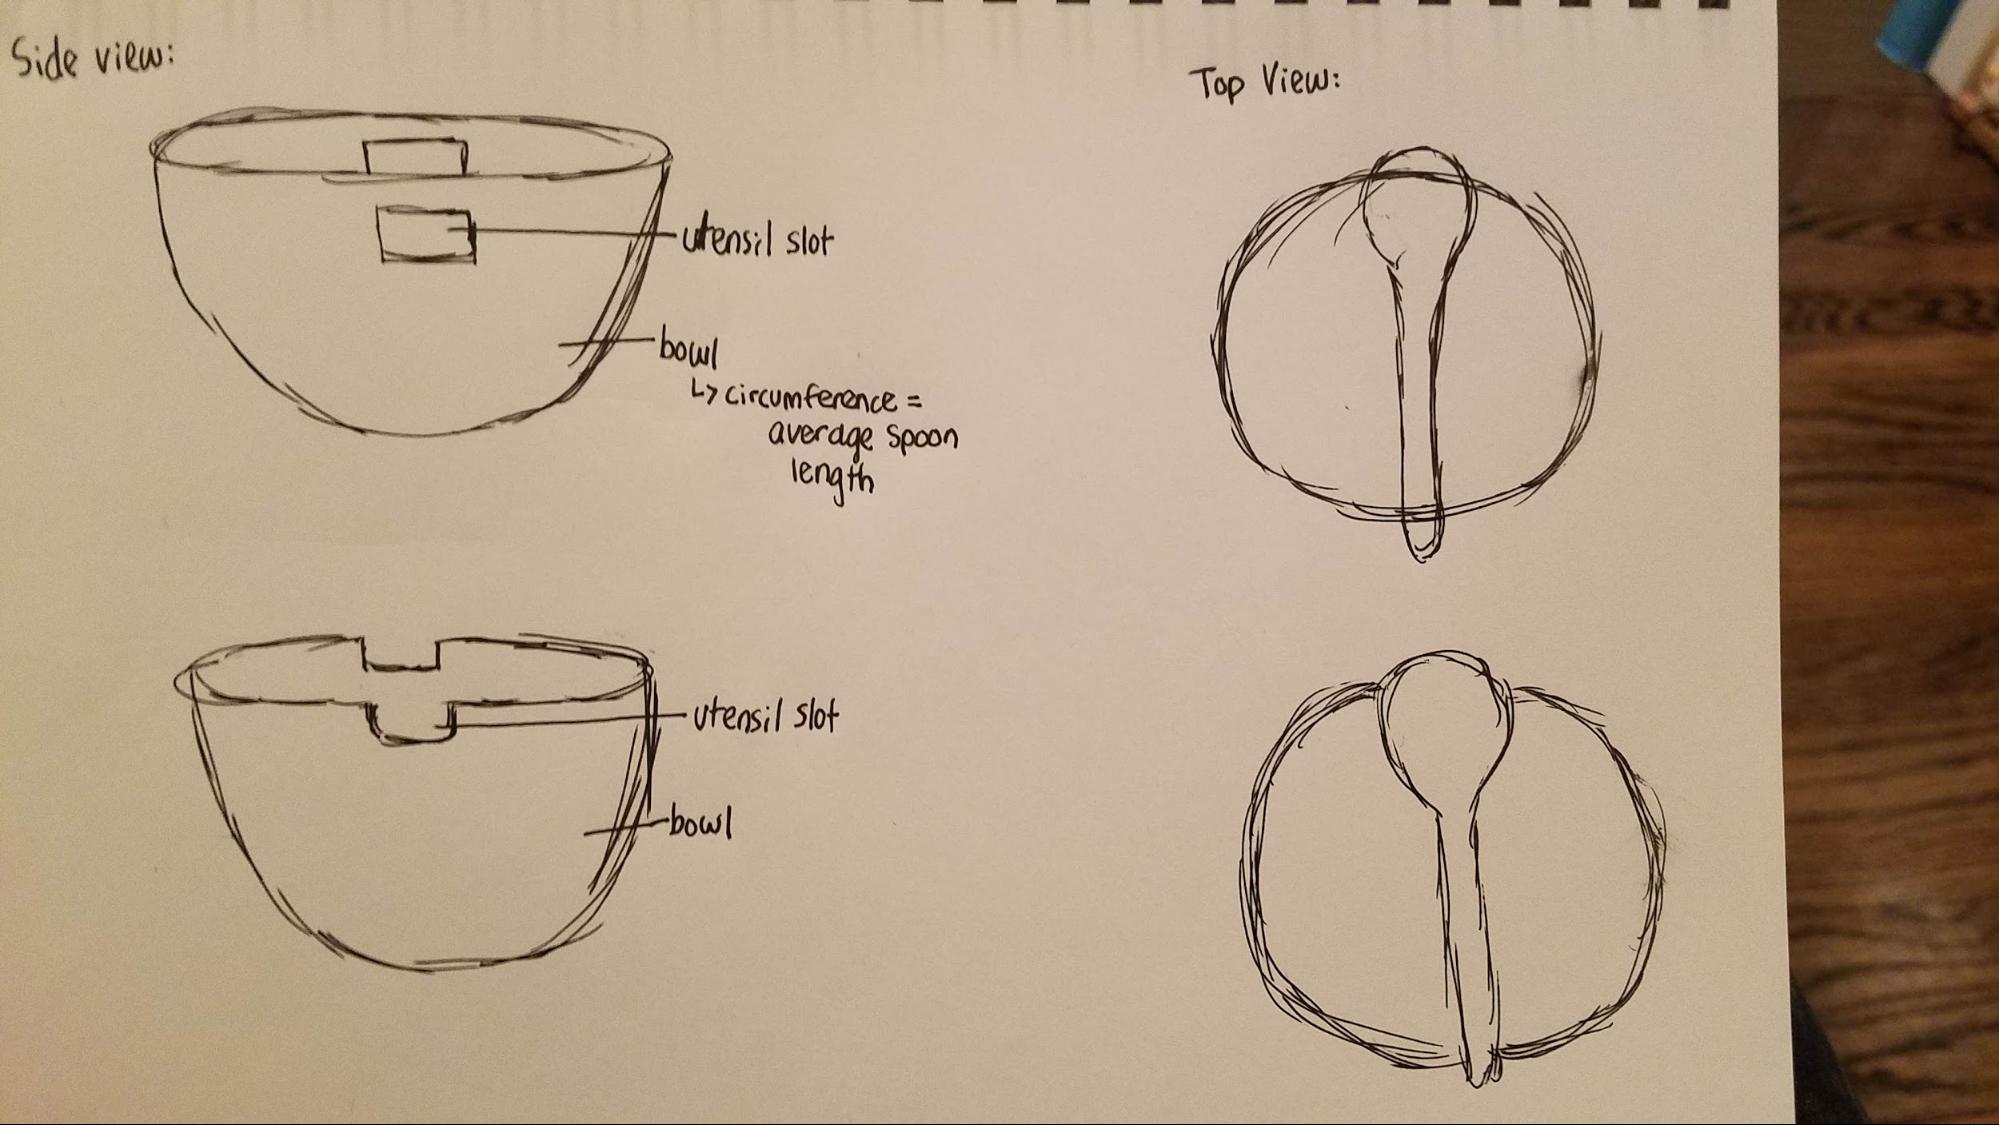 Side view:
Top View:
utensil slot
bowl
↳ circumference =
average spoon
length
utensil slot
bowl